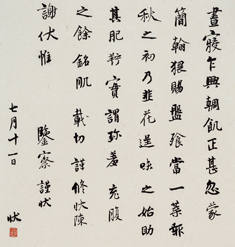 晝寢乍興朝飢正甚忽蒙
簡翰猥賜盤飧當一葉報
秋之初乃韭花逞味之始助
其肥羜實謂珍羞充腹
之餘銘肌載切謹修狀陳
謝伏惟鑒察謹狀
七月十一日
狀